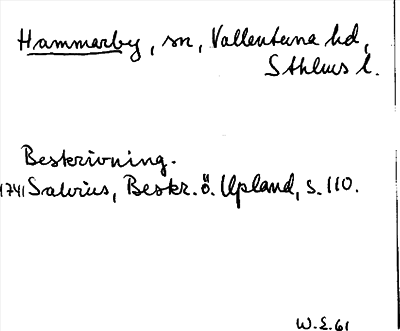 Hammarby, sn, Vallentuna hd,
Sthlms l.
Beskrivning.
1741 Salvius, Beskr. ö. Upland, s. 110.
W.E. 61